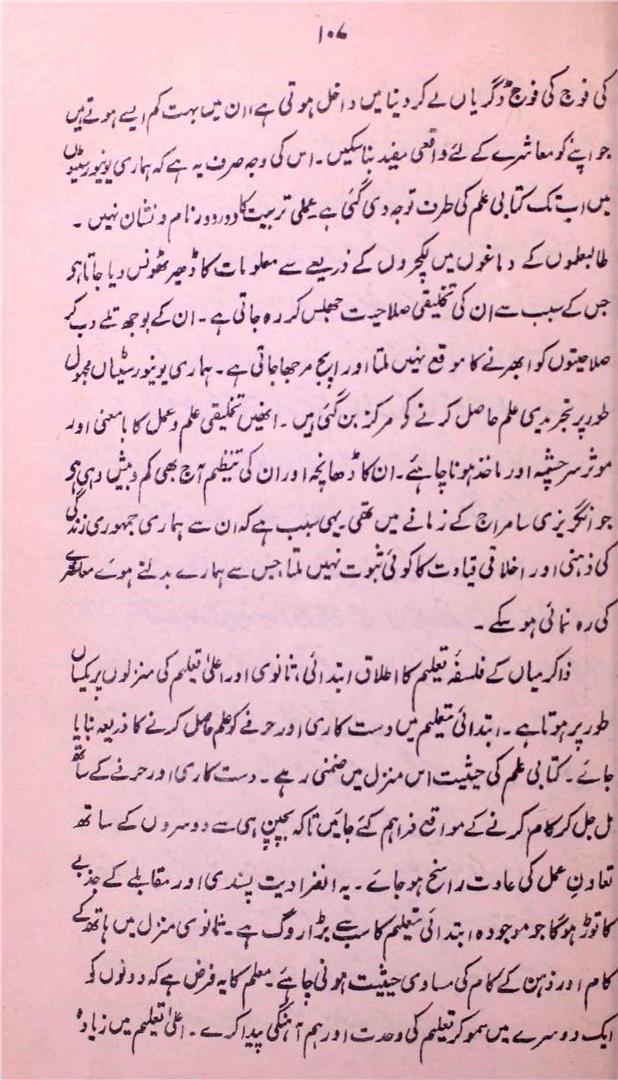 ۱۰۷
کی فوج کی فوج ڈگریاں لے کر دنیا میں داخل ہوتی ہے، ان میں بہت کم ایسے ہوتے ہیں
جو اپنے کو معاشرے کے لئے واقعی مفید بنا سکیں۔ اس کی وجہ صرف یہ ہے کہ ہماری یونیورسٹیوں
میں اب تک کتابی علم کی طرف توجہ دی گئی ہے۔ عملی تربیت کا دور دور نام و نشان نہیں۔
طالبعلموں کے دماغوں میں لکچروں کے ذریعے سے معلومات کا ڈھیر ٹھونس دیا جاتا ہو
جس کے سبب سے ان کی تخلیقی صلاحیت جھلس کر رہ جاتی ہے۔ ان کے بوجھ تلے دب کر
صلاحیتوں کو ابھرنے کا موقع نہیں ملتا اور اپج مرجھا جاتی ہے۔ ہماری یونیورسٹیاں مجہول
طور پر تجریدی علم حاصل کرنے کی مرکز بن گئی ہیں۔ انھیں تخلیقی علم و عمل کا با معنی اور
موثر سرچشمہ اور ماخذ ہونا چاہئے۔ ان کا ڈھانچہ اور ان کی تنظیم آج بھی کم و بیش وہی ہو
جو انگریزی سامراج کے زمانے میں تھی۔ یہی سبب ہے کہ ان سے ہماری جمہوری زندگی
کی ذہنی اور اخلاقی قیادت کا کوئی ثبوت نہیں ملتا، جس سے ہمارے بدلتے ہوئے معاشرے
کی رہ نمائی ہو سکے۔
ذاکر میاں کے فلسفۂ تعلیم کا اطلاق ابتدائی، ثانوی اور اعلیٰ تعلیم کی منزلوں پر یکساں
طور پر ہوتا ہے۔ ابتدائی تعلیم میں دست کاری اور حرفے کو علم حاصل کرنے کا ذریعہ بنایا
جائے۔ کتابی علم کی حیثیت اس منزل میں ضمنی رہے۔ دست کاری اور حرفے کے ساتھ
مل جل کر کام کرنے کے مواقع فراہم کئے جائیں تاکہ بچپن ہی سے دوسروں کے ساتھ
تعاونِ عمل کی عادت راسخ ہو جائے۔ یہ انفرادیت پسندی اور مقابلے کے جذبے
کا توڑ ہوگا جو موجودہ ابتدائی تعلیم کا سب سے بڑا روگ ہے۔ ثانوی منزل میں ہاتھ کے
کام اور ذہن کے کام کی مساوی حیثیت ہونی چاہئے۔ معلم کا یہ فرض ہے کہ دونوں کو
ایک دوسرے میں سمو کر تعلیم کی وحدت اور ہم آہنگی پیدا کرے۔ اعلیٰ تعلیم میں زیادہ